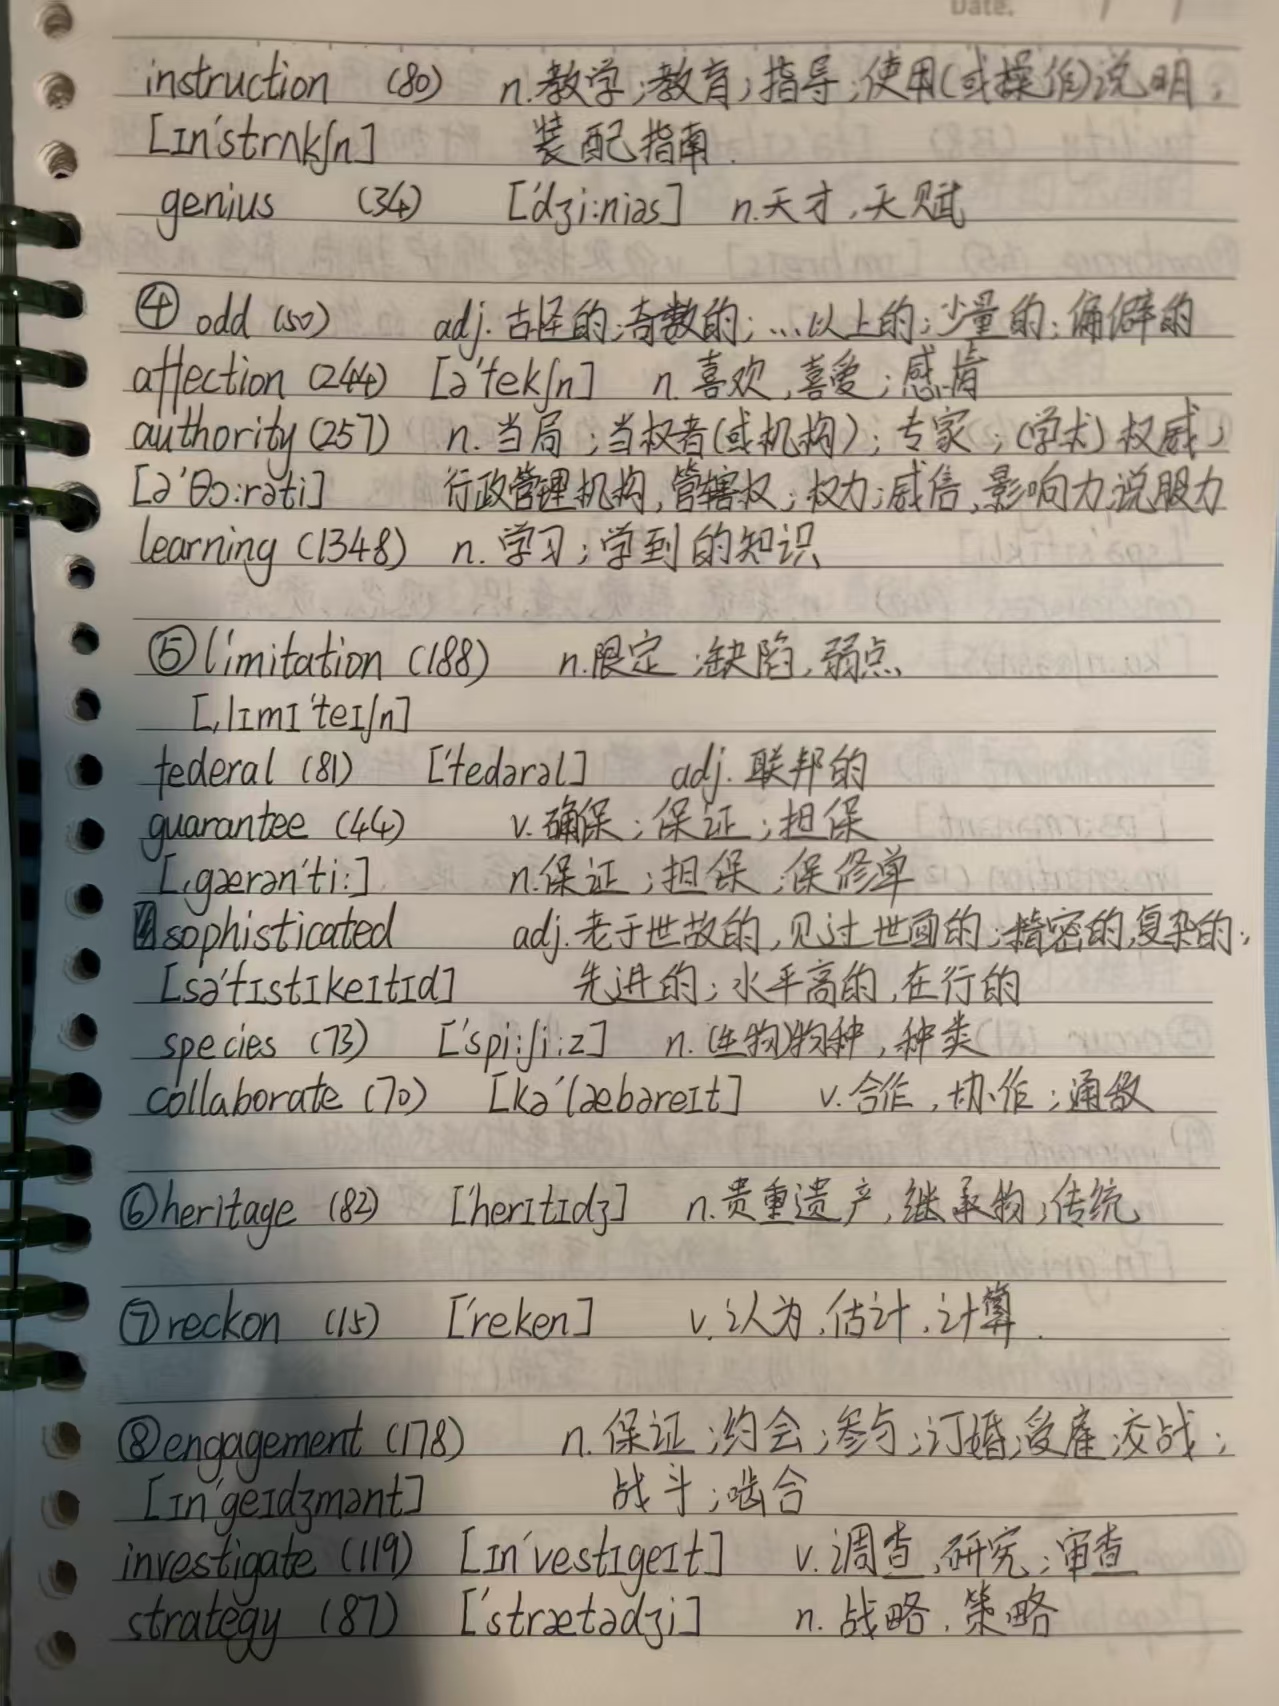 Date.
instruction (80) n.教学;教育;指导;使用(或操作)说明;
[ɪn'strʌkʃn] 装配指南.
genius (34) ['dʒi:niəs] n.天才,天赋
④ odd (50) adj.古怪的;奇数的;...以上的;少量的;偏僻的
affection (244) [ə'fekʃn] n.喜欢,喜爱;感情
authority (257) n.当局;当权者(或机构);专家;(学术)权威;
[ə'θɔ:rəti] 行政管理机构,管辖权;权力;威信,影响力,说服力
learning (1348) n.学习;学到的知识
⑤ limitation (188) n.限定;缺陷,弱点
[,lɪmɪ'teɪʃn]
federal (81) ['fedərəl] adj.联邦的
guarantee (44) v.确保;保证;担保
[,gærən'ti:] n.保证;担保;保修单
sophisticated adj.老于世故的,见过世面的;精密的,复杂的;
[sə'fɪstɪkeɪtɪd] 先进的;水平高的,在行的
species (73) ['spi:ʃi:z] n.(生物)物种,种类
collaborate (70) [kə'læbəreɪt] v.合作,协作;通敌
⑥ heritage (82) ['herɪtɪdʒ] n.贵重遗产,继承物;传统
⑦ reckon (15) ['reken] v.认为,估计,计算.
⑧ engagement (178) n.保证;约会;参与;订婚;受雇;交战;
[ɪn'geɪdʒmənt] 战斗;啮合
investigate (119) [ɪn'vestɪgeɪt] v.调查,研究;审查
strategy (87) ['strætədʒi] n.战略,策略